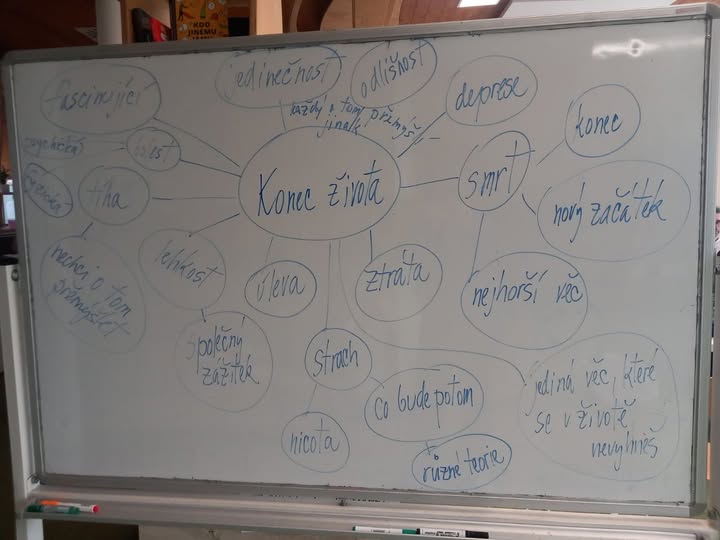 KDO
JINÉMU
fascinující
jedinečnost
odlišnost
každý o tom přemýš
jinak
deprese
konec
psychická
bolest
fyzická
tíha
Konec života
smrt
nový začátek
nechci o tom
přemýšlet
lehkost
úleva
ztráta
nejhorší věc
společný
zážitek
strach
co bude potom
nicota
různé teorie
jediná věc, které
se v životě
nevyhneš